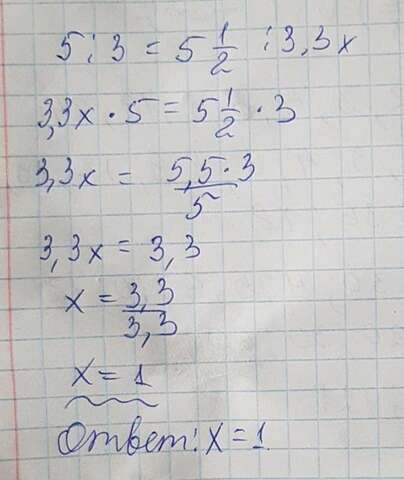 5 : 3 = 5 1/2 : 3,3x
3,3x · 5 = 5 1/2 · 3
3,3x = 5,5 · 3 / 5
3,3x = 3,3
x = 3,3 / 3,3
x = 1
Ответ: x = 1.